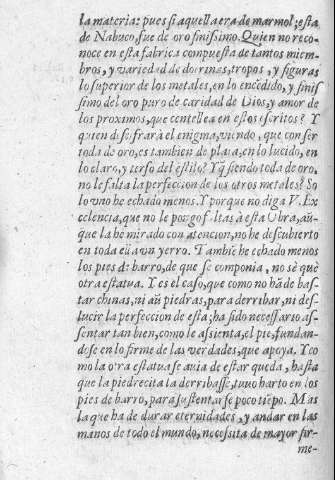 la materia: pues si aquella era de marmol; esta
de Nabuco, fue de oro finissimo. Quien no reco-
noce en esta fabrica compuesta de tantos miem-
bros, y variedad de dotrinas, tropos, y figuras
lo superior de los metales, en lo encēdido, y finis
simo del oro puro de caridad de Dios, y amor de
los proximos, que centellea en estos escritos? Y
quien descifrarà el enigma, viendo, que con ser
toda de oro, es tambien de plata, en lo lucido, en
lo claro, y terso del estilo? Y q̃ siendo toda de oro,
no le falta la perfeccion de los otros metales? So
lo vno he echado menos. Y porque no diga V. Ex
celencia, que no le pongo faltas à esta Obra, aũ-
que la hè mirado con atencion, no he descubierto
en toda ella vn yerro. Tambiē he echado menos
los pies de barro, de que se componia, no sè què
otra estatua. Y es el caso, que como no hã de bas-
tar chinas, ni aũ piedras, para derribar, ni des-
lucir la perfeccion de esta; ha sido necessario as-
sentar tan bien, como le assienta, el pie, fundan-
dose en lo firme de las verdades, que apoya. Y co
mo la otra estatua se auia de estar queda, hasta
que la piedrecita la derribasse, tuuo harto en los
pies de barro, para sustentarse poco tiēpo. Mas
la que ha de durar eternidades, y andar en las
manos de todo el mundo, necesita de mayor fir-
me-